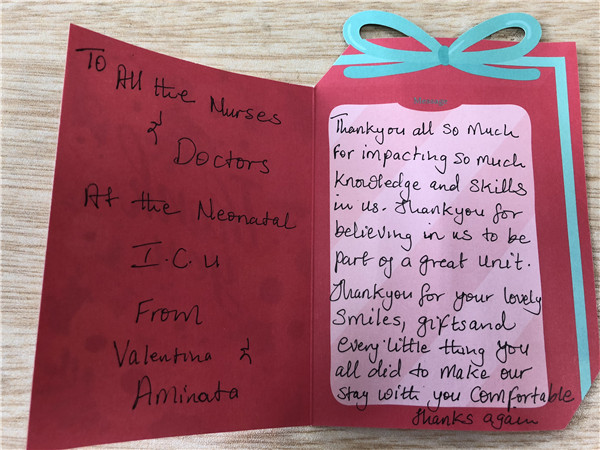 To All the Nurses
&
Doctors
At the Neonatal
I.C.U
From
Valentina &
Aminata
Thankyou all so much
for impacting so much
knowledge and skills
in us. Thankyou for
believing in us to be
part of a great unit.
Thankyou for your lovely
Smiles, gifts and
every little thing you
all did to make our
stay with you comfortable
Thanks again